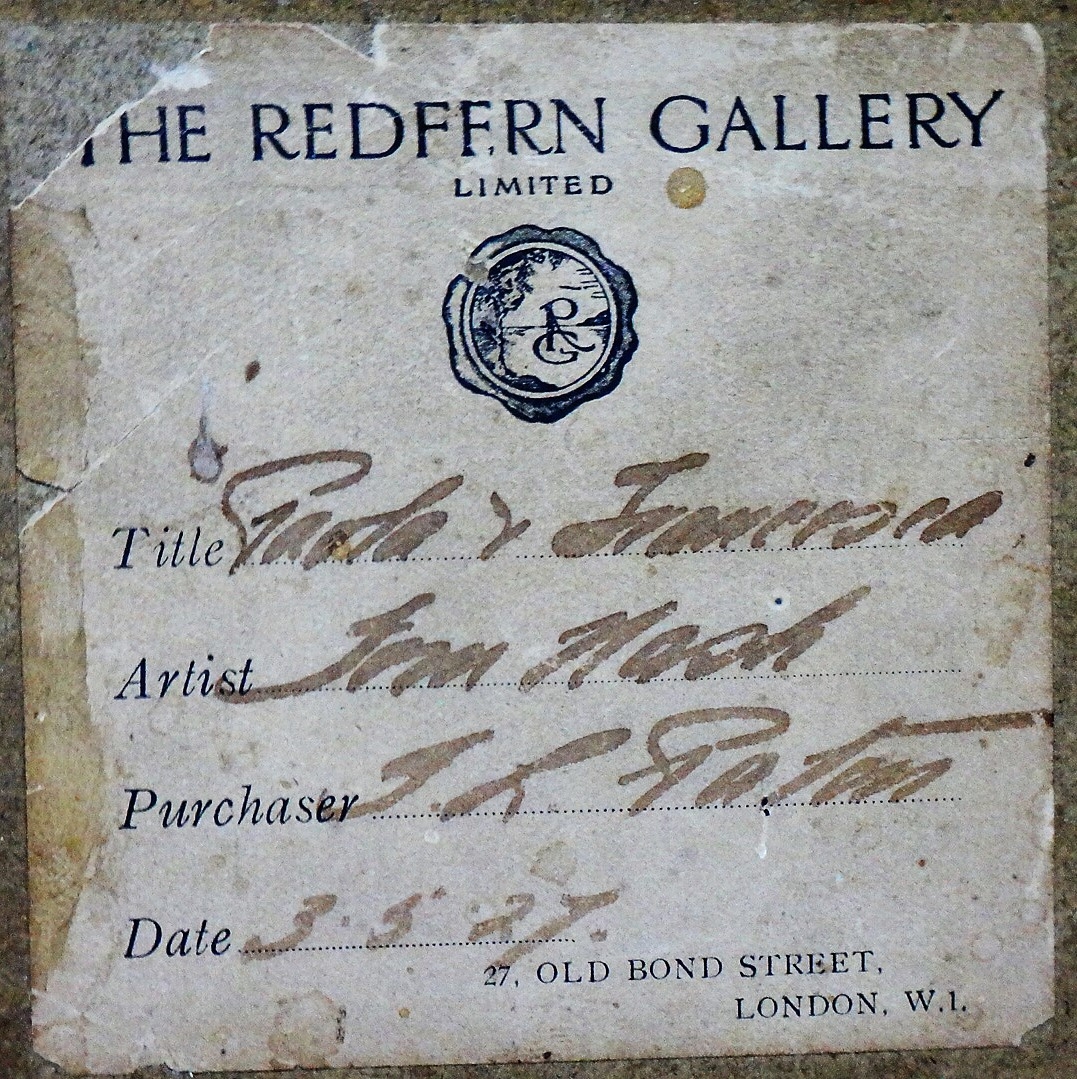 THE REDFERN GALLERY
LIMITED
RG
Title Paolo & Francesca
Artist Tom Nash
Purchaser J. L. Paton
Date 3.5.27.
27, OLD BOND STREET,
LONDON, W.1.